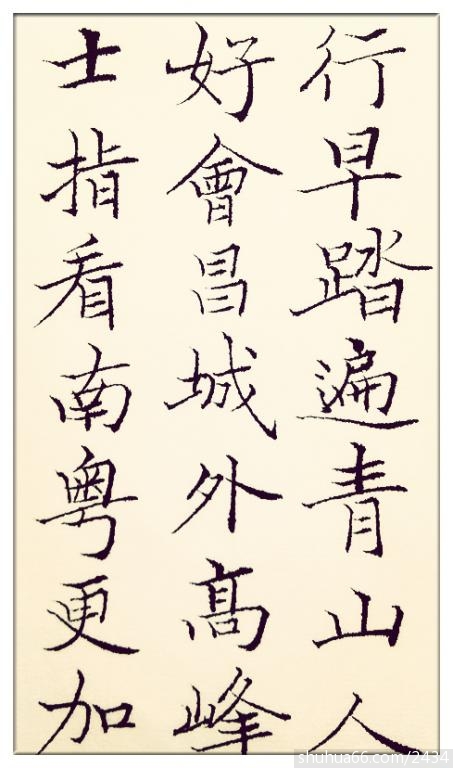 行早踏遍青山人
好會昌城外高峰
士指看南粵更加
shuhua66.com/2434